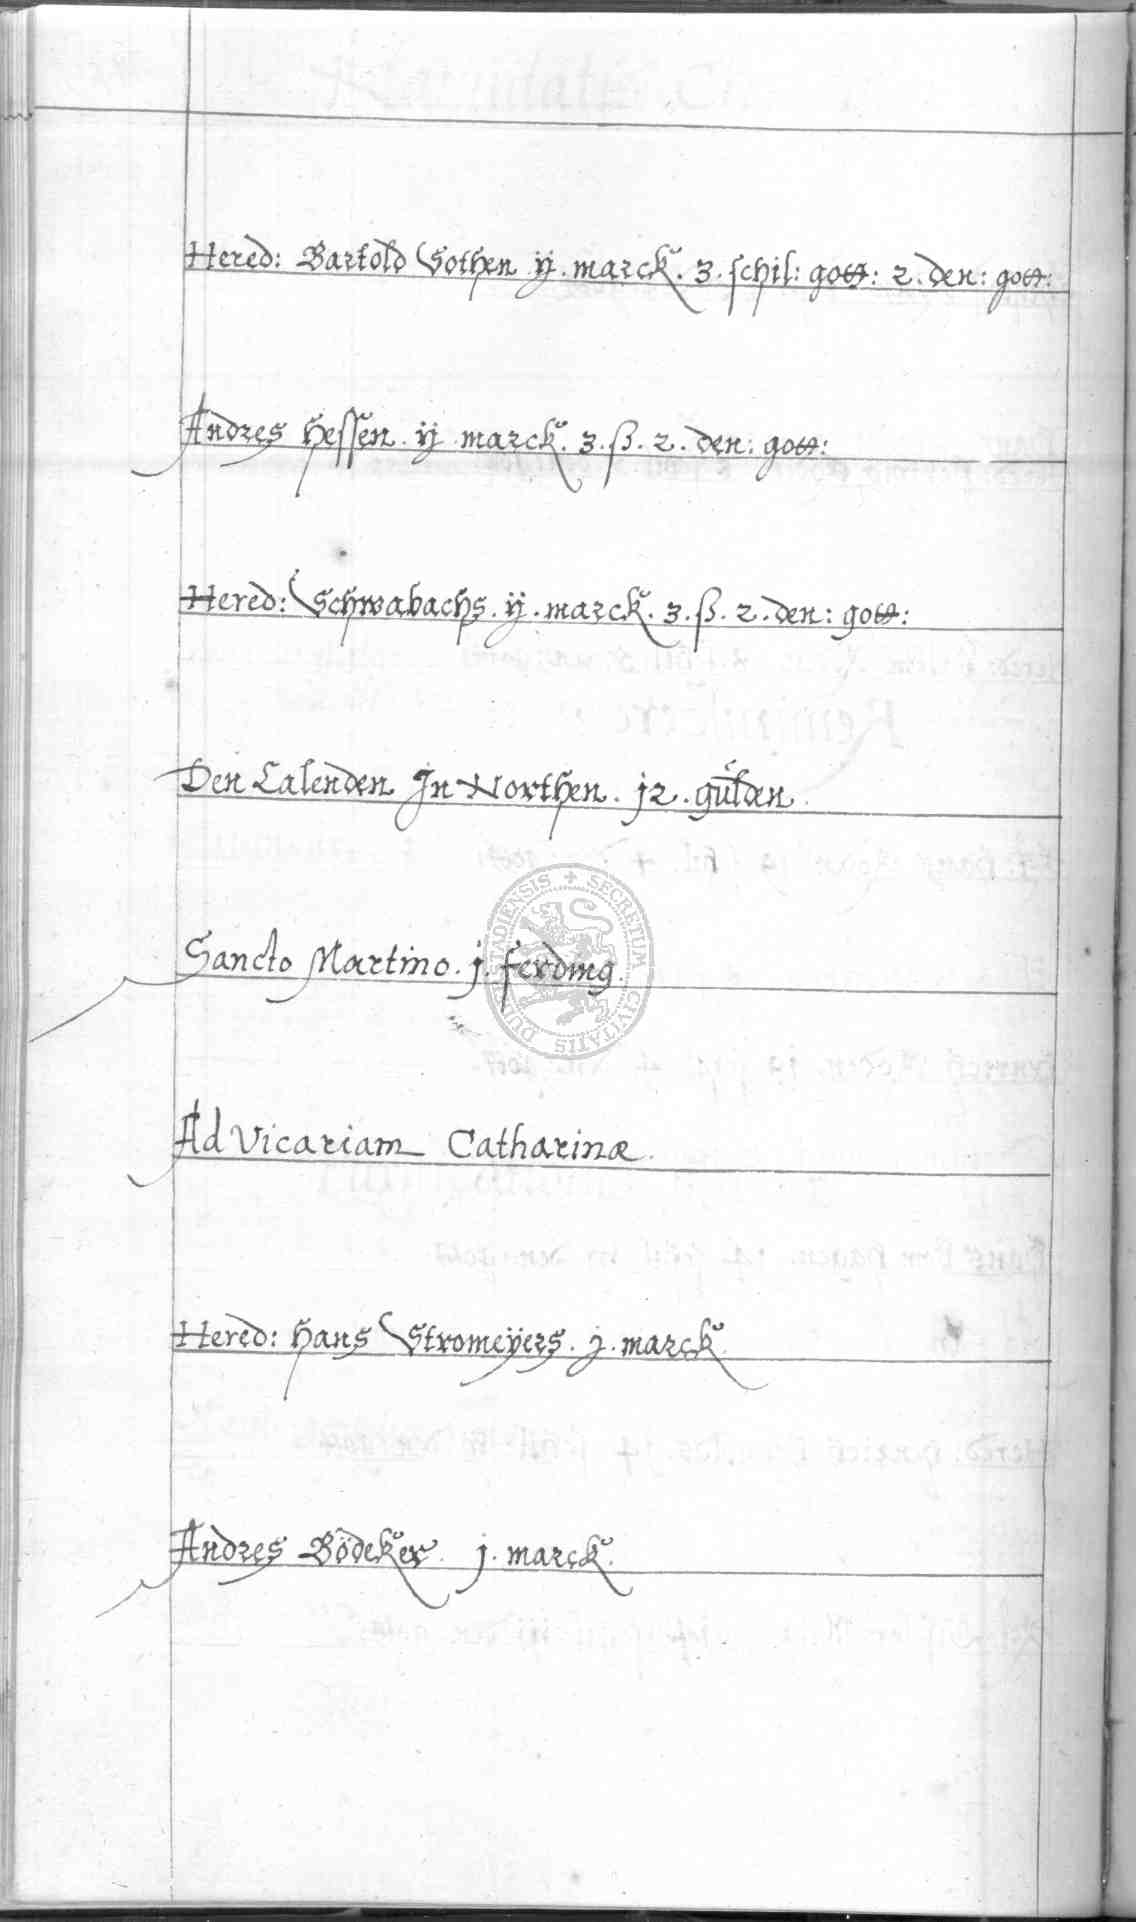 Hered: Bartold Sothen ij. marck. 3. schil: gott: 2. den: gott:
Andres Hessen. ij marck. 3. ß. 2. den: gott:
Hered: Schwabachs. ij. marck. 3. ß. 2. den: gott:
Den Calenden Jn Northen. j2. gülden.
Sancto Martino. j. ferding.
Ad Vicariam Catharinæ.
Hered: Hans Stromeÿers. j. marck.
Andres Bödeker. j. marck.
SECRETUM CIVITATIS DUDERSTADIENSIS